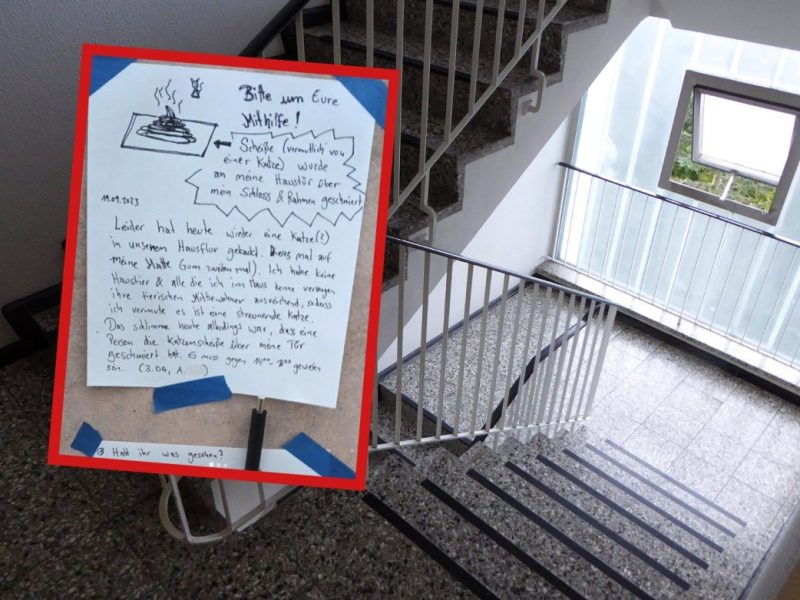 Bitte um Eure
Mithilfe!
Scheiße (vermutlich von
einer Katze) wurde
an meine Haustür über
mein Schloss & Rahmen geschmiert
19.09.2023
Leider hat heute wieder eine Katze(?)
in unserem Hausflur gekackt. Dieses mal auf
meine Matte (zum zweiten mal). Ich habe keine
Haustier & alle die ich im Haus kenne versorgen
ihre tierischen Mitbewohner ausreichend, sodass
ich vermute es ist eine streunende Katze.
Das schlimme heute allerdings war, dass eine
Person die Katzenscheiße über meine Tür
geschmiert hat. Es muss gegen gewesen
sein. (3.OG, A.
Habt ihr was gesehen?